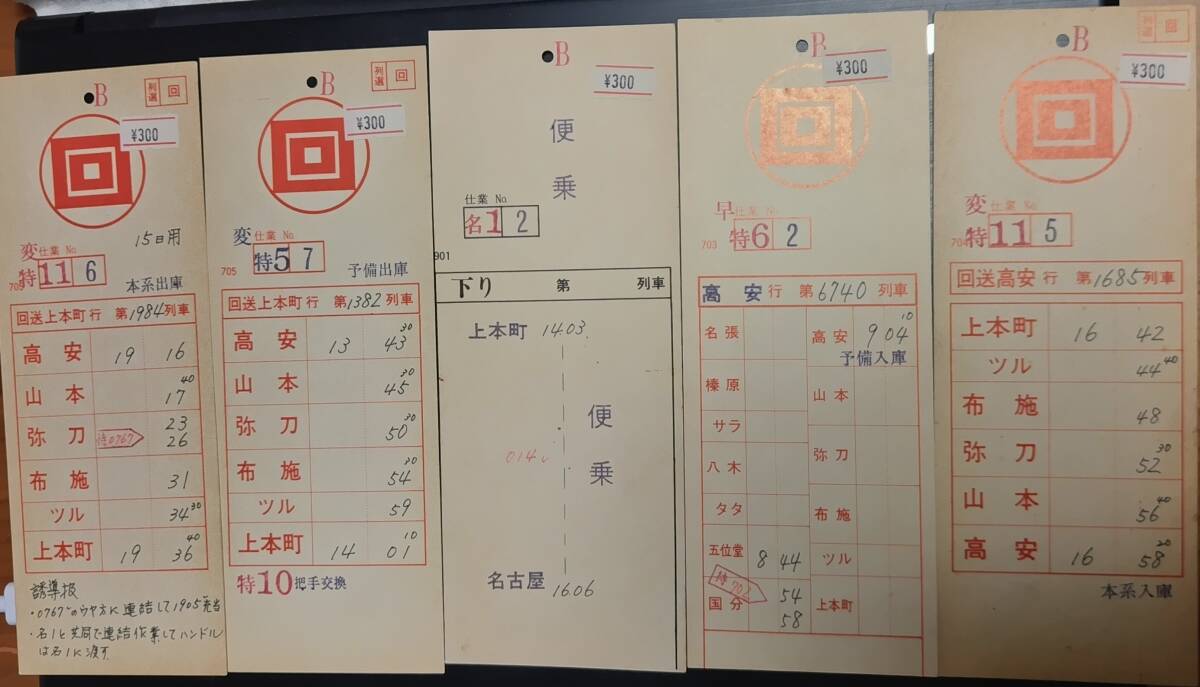 B
列選 回
¥300
回
15日用
変 仕業 No
特11 6
本系出庫
回送上本町 行 第1984列車
高安 19 16
山本 17 40
弥刀 特0767 23
26
布施 31
ツル 34 30
上本町 19 36 40
誘導扱
・名1と共同で連結作業してハンドル
は名1に渡す
B
列選 回
¥300
回
変 仕業 No
特5 7
705
予備出庫
回送上本町 行 第1382列車
高安 13 43 30
山本 45 30
弥刀 50 30
布施 54 30
ツル 59
上本町 14 01 10
特10把手交換
B
¥300
便乗
仕業 No
名1 2
901
下り 第 列車
上本町 1403
便乗
名古屋 1606
B
¥300
回
早 仕業 No
703 特6 2
高安 行 第6740列車
名張
榛原
サラ
八木
タタ
五位堂 8 44
特702
国分 54
58
高安 9 04 10
予備入庫
山本
弥刀
布施
ツル
上本町
B
列選 回
¥300
回
変 仕業 No
特11 5
回送高安 行 第1685列車
上本町 16 42
ツル 44 40
布施 48
弥刀 52 30
山本 56 40
高安 16 58 20
本系入庫